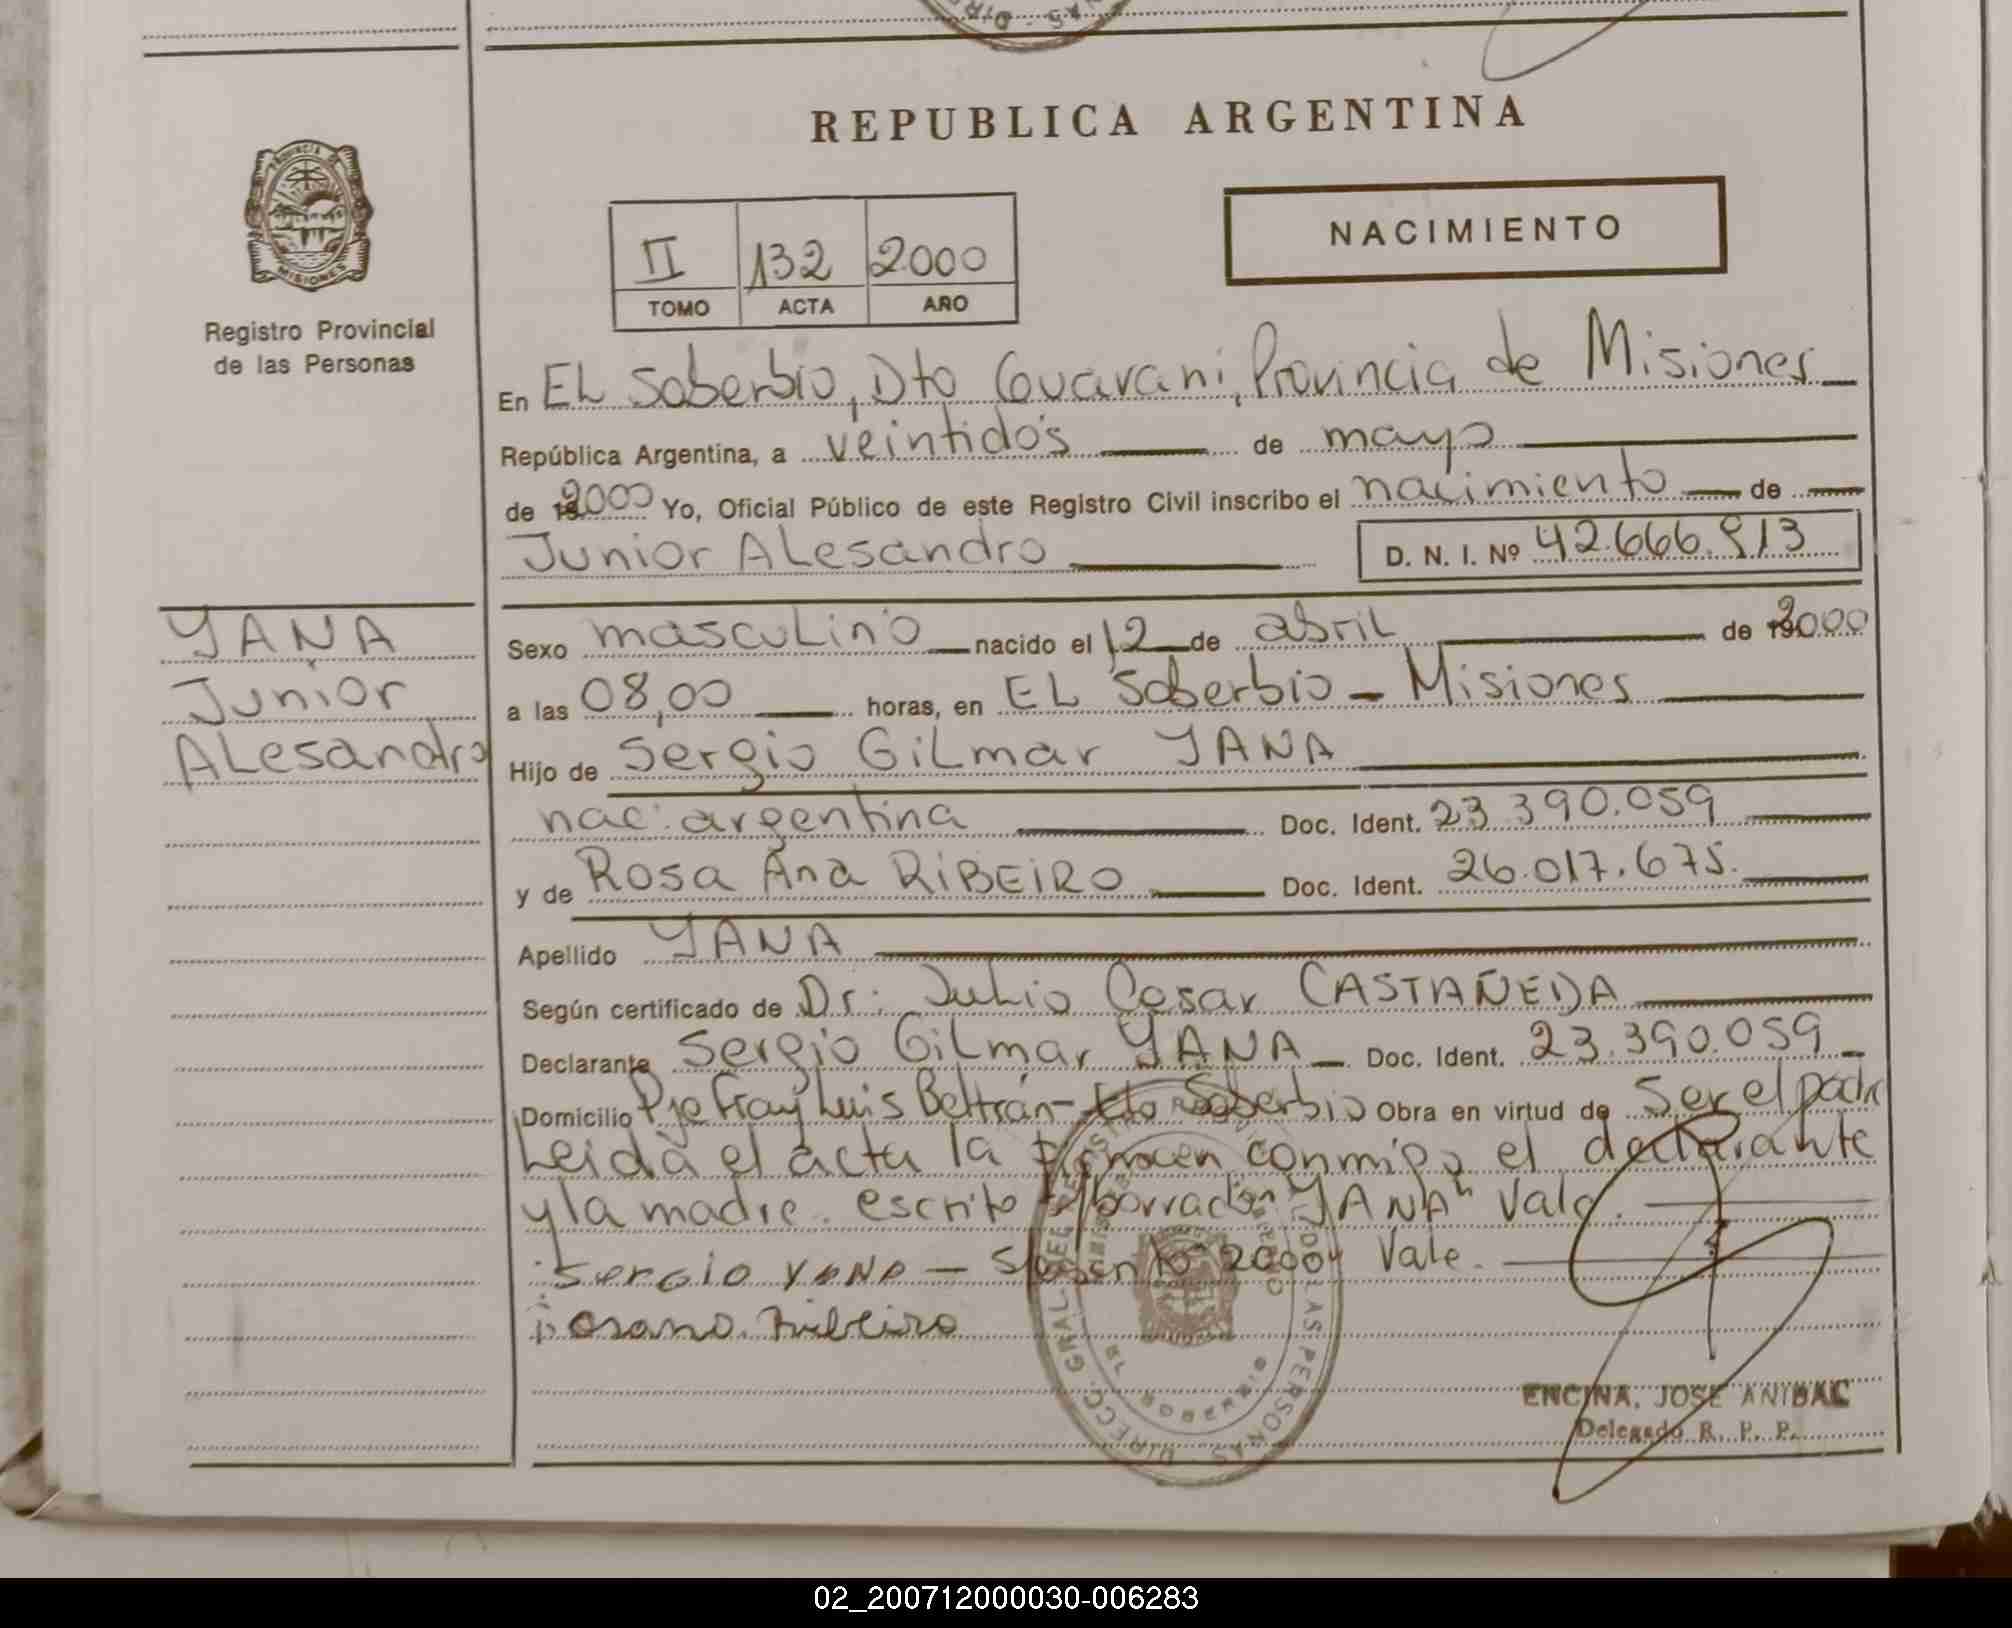 REPUBLICA ARGENTINA
PROVINCIA DE
MISIONES
Registro Provincial
de las Personas
NACIMIENTO
II 132 2000
TOMO ACTA AÑO
En EL Soberbio, Dto Guarani, Provincia de Misiones
República Argentina, a veintidós de mayo
de 2000 Yo, Oficial Público de este Registro Civil inscribo el nacimiento de
Junior ALesandro D. N. I. Nº 42.666.913
YANA
Junior
ALesandro
Sexo masculino nacido el 12 de abril de 2000
a las 08,00 horas, en EL Soberbio - Misiones
Hijo de Sergio GiLmar YANA
nac. argentina Doc. Ident. 23.390.059
y de Rosa Ana RIBEIRO Doc. Ident. 26.017.675.
Apellido YANA
Según certificado de Dr. Julio Cesar CASTAÑEDA
Declarante Sergio GiLmar YANA Doc. Ident. 23.390.059
Domicilio Pje Fray Luis Beltrán - Soberbio Obra en virtud de Ser el padre
Leida el acta la firman conmigo el declarante
y la madre. escrito s/borrado "YANA" Vale.
Sergio YANA - 2000 Vale.
Rosana Ribeiro
ENCINA, JOSE ANIBAL
Delegado R. P. P.
02_200712000030-006283